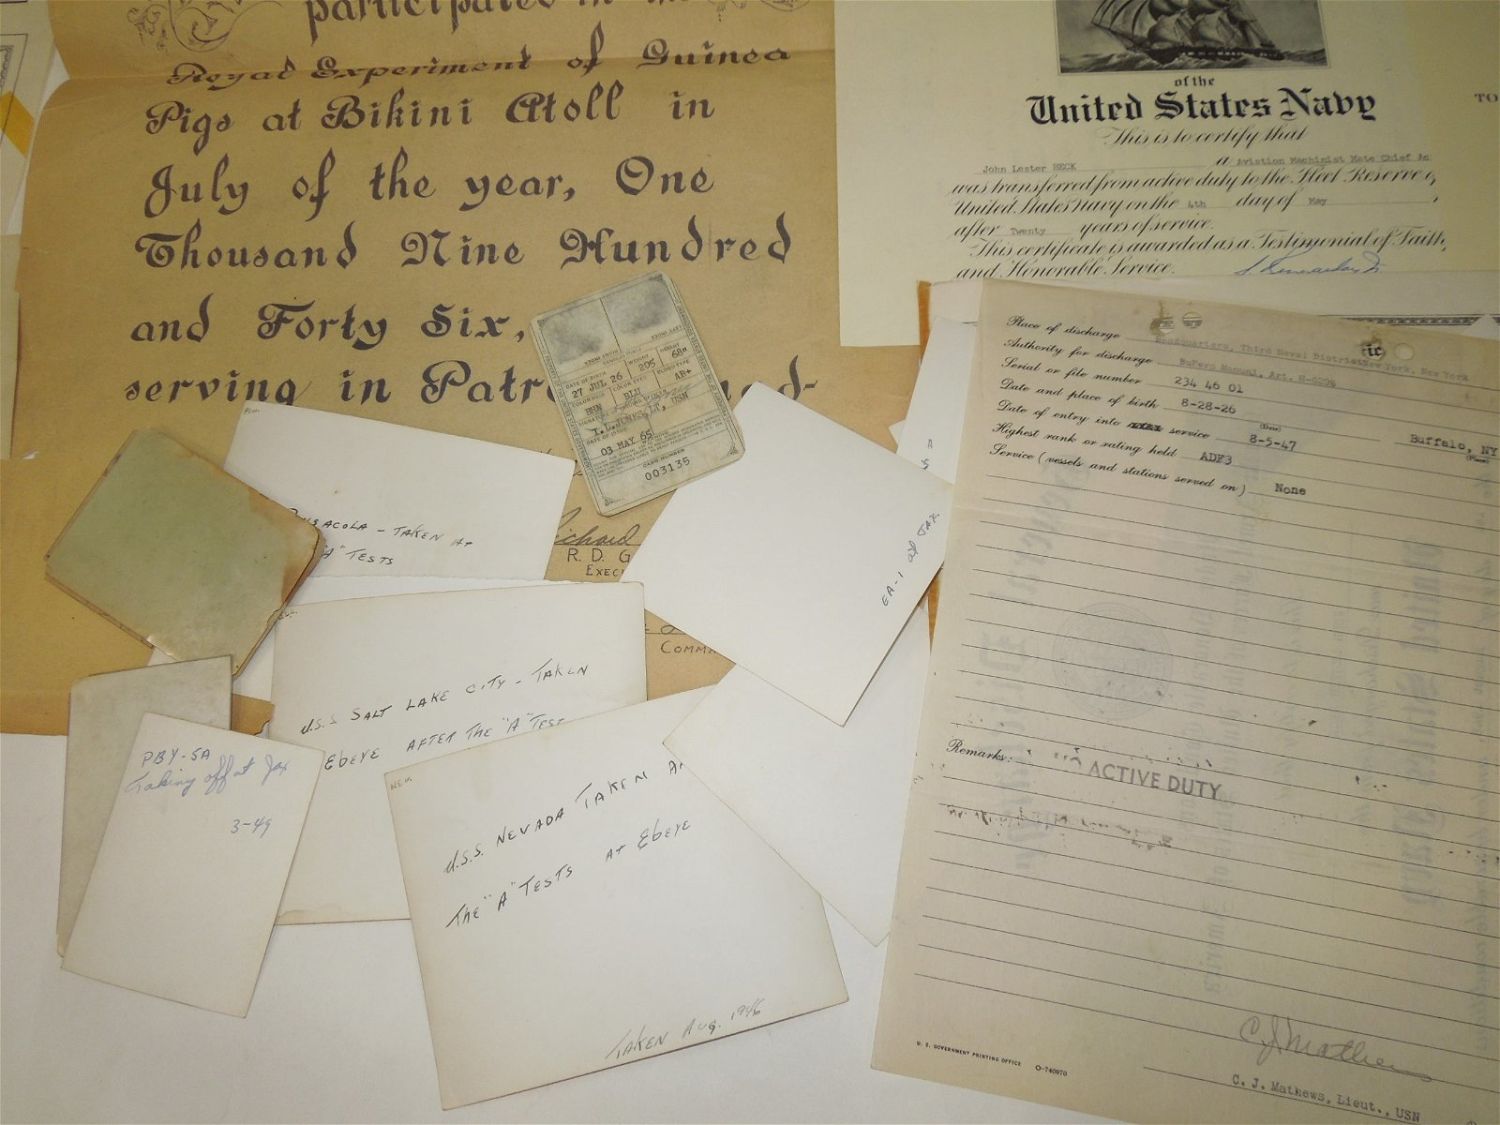 participated in the
Royal Experiment of Guinea
Pigs at Bikini Atoll in
July of the year, One
Thousand Nine Hundred
and Forty Six,
serving in
of the
United States Navy
This is to certify that
John Lester HECK a Aviation Machinist Mate Chief
was transferred from active duty to the Fleet Reserve
United States Navy on the 4th day of May
after Twenty years of service.
This certificate is awarded as a Testimonial of Faith
and Honorable Service.
TO
DATE OF BIRTH
27 JUL 26
WEIGHT
205
HEIGHT
68"
COLOR HAIR
BRN
COLOR EYES
BLU
BLOOD TYPE
AB+
LT, USN
DATE OF ISSUE
03 MAY 65
CARD NUMBER
003135
Place of discharge Headquarters, Third Naval District New York, New York
Authority for discharge BuPers Manual, Art.
Serial or file number 234 46 01
Date and place of birth 8-28-26 Buffalo, NY
(Date) (Place)
Date of entry into service 8-5-47
Highest rank or rating held ADE3
Service (vessels and stations served on) None
Remarks:
ACTIVE DUTY
C. J. Mathews
C. J. Mathews, Lieut., USN
U. S. GOVERNMENT PRINTING OFFICE O-740970
- TAKEN AT
"A" TESTS
Richard
R. D. G
EXEC
COMM
EA-1 at JAX
U.S.S SALT LAKE CITY - TAKEN
EBEYE AFTER THE "A" TEST
PBY-5A
Taking off at Jax
3-49
U.S.S. NEVADA TAKEN
THE "A" TESTS AT EBEYE
TAKEN AUG. 1946